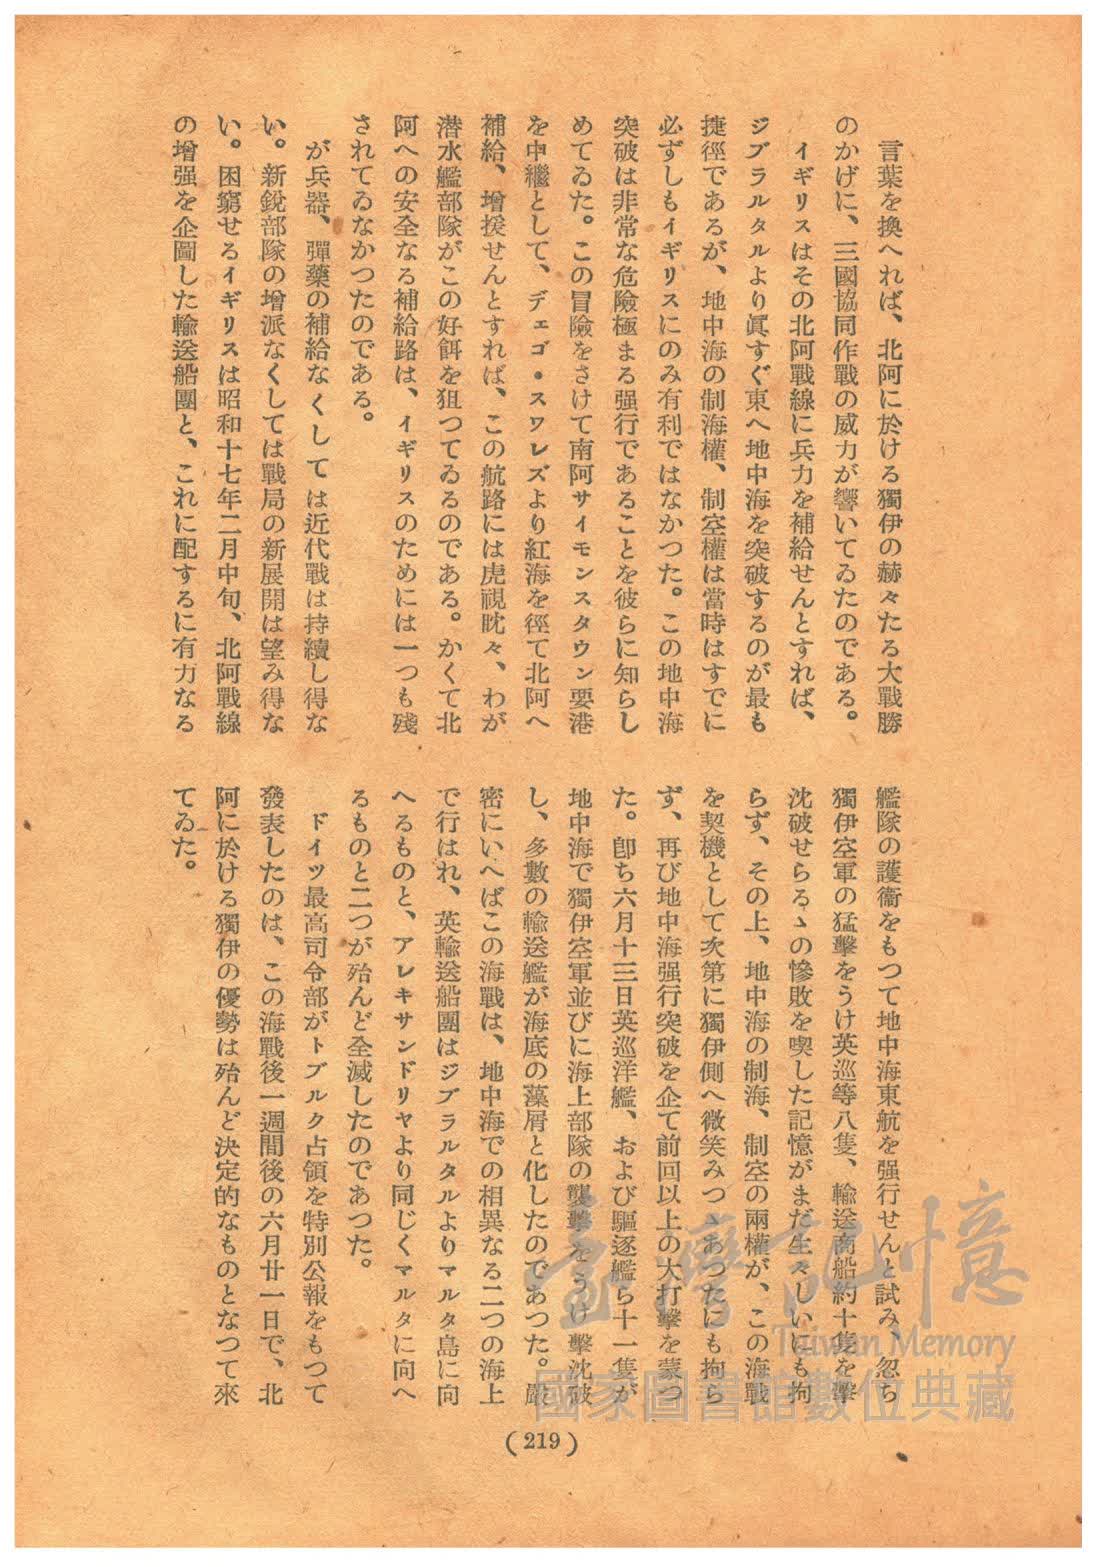 言葉を換へれば、北阿に於ける獨伊の赫々たる大戰勝
のかげに、三國協同作戰の威力が響いてゐたのである。
イギリスはその北阿戰線に兵力を補給せんとすれば、
ジブラルタルより眞すぐ東へ地中海を突破するのが最も
捷徑であるが、地中海の制海權、制空權は當時はすでに
必ずしもイギリスにのみ有利ではなかつた。この地中海
突破は非常な危險極まる强行であることを彼らに知らし
めてゐた。この冒險をさけて南阿サイモンスタウン要港
を中繼として、デェゴ・スワレズより紅海を徑て北阿へ
補給、增援せんとすれば、この航路には虎視眈々、わが
潛水艦部隊がこの好餌を狙つてゐるのである。かくて北
阿への安全なる補給路は、イギリスのためには一つも殘
されてゐなかつたのである。
が兵器、彈藥の補給なくしては近代戰は持續し得な
い。新銳部隊の增派なくしては戰局の新展開は望み得な
い。困窮せるイギリスは昭和十七年二月中旬、北阿戰線
の增强を企圖した輸送船團と、これに配するに有力なる
艦隊の護衞をもつて地中海東航を强行せんと試み、忽ち
獨伊空軍の猛擊をうけ英巡等八隻、輸送商船約十隻を擊
沈破せらるゝの慘敗を喫した記憶がまだ生々しいにも拘
らず、その上、地中海の制海、制空の兩權が、この海戰
を契機として次第に獨伊側へ微笑みつゝあつたにも拘ら
ず、再び地中海强行突破を企て前回以上の大打擊を蒙つ
た。卽ち六月十三日英巡洋艦、および驅逐艦ら十一隻が
地中海で獨伊空軍並びに海上部隊の襲擊をうけ擊沈破
し、多數の輸送艦が海底の藻屑と化したのであつた。嚴
密にいへばこの海戰は、地中海での相異なる二つの海上
で行はれ、英輸送船團はジブラルタルよりマルタ島に向
へるものと、アレキサンドリヤより同じくマルタに向へ
るものと二つが殆んど全滅したのであつた。
ドイツ最高司令部がトブルク占領を特別公報をもつて
發表したのは、この海戰後一週間後の六月廿一日で、北
阿に於ける獨伊の優勢は殆んど決定的なものとなつて來
てゐた。
(219)
臺灣記憶
Taiwan Memory
國家圖書館數位典藏